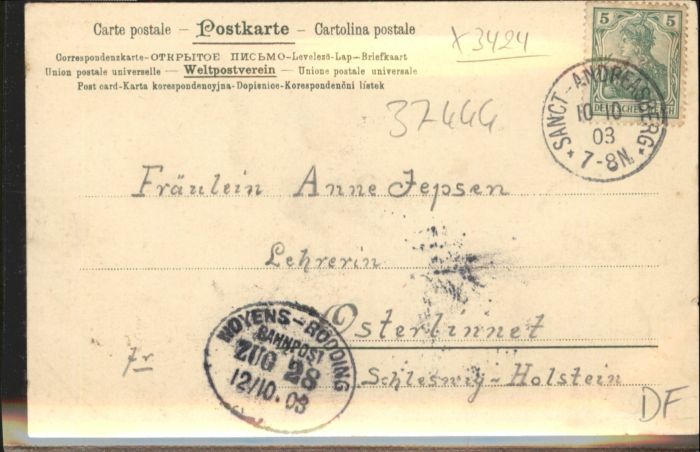 Carte postale – Postkarte – Cartolina postale
Correspondenzkarte–ОТКРЫТОЕ ПИСЬМО–Levelező-Lap–Briefkaart
Union postale universelle – Weltpostverein – Unione postale universale
Post card–Karta korespondencyjna–Dopisnice–Korespondenční lístek
X3424
5 5
DEUTSCHES REICH
SANCT-ANDREASBERG
10 10
03
* 7-8N. *
37444
Fräulein Anne Jepsen
Lehrerin
Osterlinnet
Schleswig-Holstein
WOYENS–RÖDDING
BAHNPOST
ZUG 28
12/10.03
DF